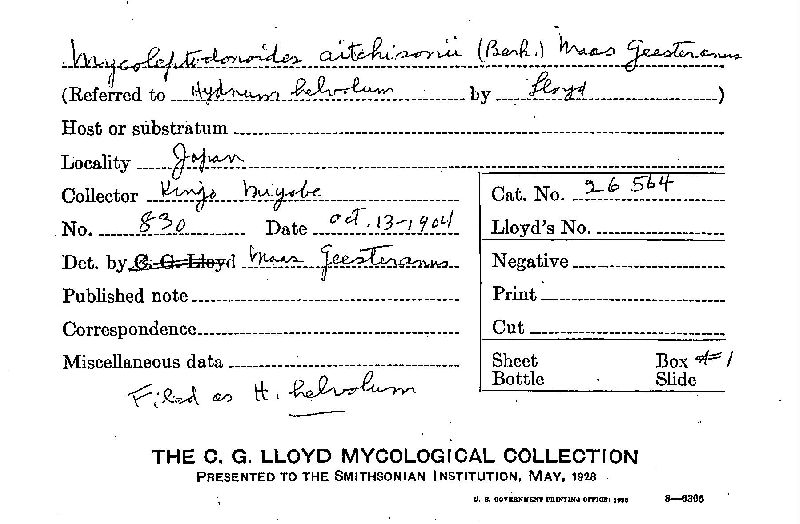 Mycoleptodonoides aitchisonii (Berk.) Maas Geesteranus
(Referred to Hydnum helvolum by Lloyd)
Host or substratum
Locality Japan
Collector Kingo Miyabe
No. 830 Date Oct. 13-1904
Det. by C. G. Lloyd Maas Geesteranus
Published note
Correspondence
Miscellaneous data
Filed as H. helvolum
Cat. No. 26564
Lloyd's No.
Negative
Print
Cut
Sheet Box #1
Bottle Slide
THE C. G. LLOYD MYCOLOGICAL COLLECTION
PRESENTED TO THE SMITHSONIAN INSTITUTION, MAY, 1928
U. S. GOVERNMENT PRINTING OFFICE: